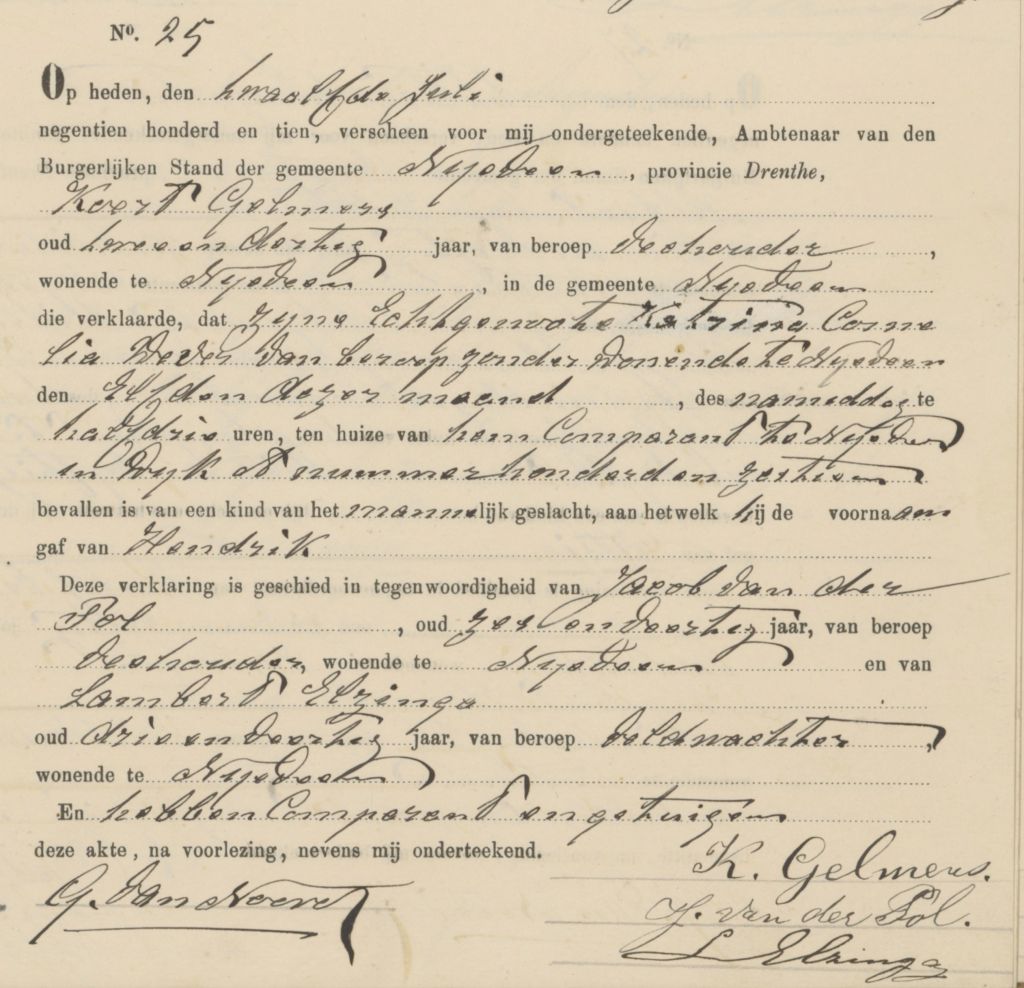 No. 25
Op heden, den twaalfde Juli
negentien honderd en tien, verscheen voor mij ondergeteekende, Ambtenaar van den
Burgerlijken Stand der gemeente Nijeveen, provincie Drenthe,
Koert Gelmers
oud twee en dertig jaar, van beroep veehouder,
wonende te Nijeveen, in de gemeente Nijeveen
die verklaarde, dat zyne Echtgenoote Katrina Corne
lia Wever van beroep zonder wonende te Nijeveen
den Elfden dezer maand, des namiddag te
half drie uren, ten huize van hem Comparant te Nijeveen
in Wyk A nummer honderd en zestien
bevallen is van een kind van het mannelijk geslacht, aan hetwelk hij de voornaam
gaf van Hendrik
Deze verklaring is geschied in tegenwoordigheid van Jacob van der
Pol, oud zes en veertig jaar, van beroep
veehouder, wonende te Nijeveen en van
Lambert Elzinga
oud drie en veertig jaar, van beroep veldwachter,
wonende te Nijeveen
En hebben Comparant en getuigen
deze akte, na voorlezing, nevens mij onderteekend.
K. Gelmers.
G. van
J. van der Pol.
L Elzinga